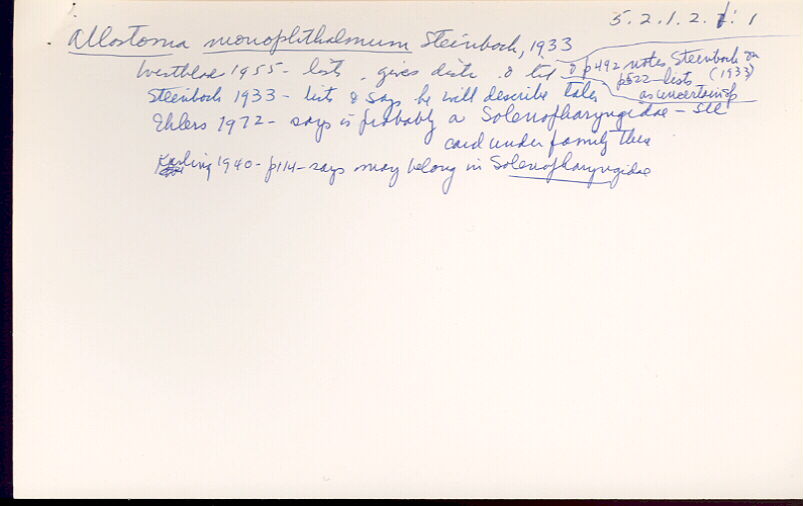 5.2.1.2.1:1
Allostoma monophthalmum Steinböck, 1933
Westblad 1955 - lists, gives distr. & lit & p492 notes Steinbock on
p522 lists (1933)
as uncertain sp
Steinbock 1933 - lists & says he will describe later
Ehlers 1972 - says is probably a Solenopharyngidae - see
card under family there
Karling 1940 - p114 - says may belong in Solenopharyngidae